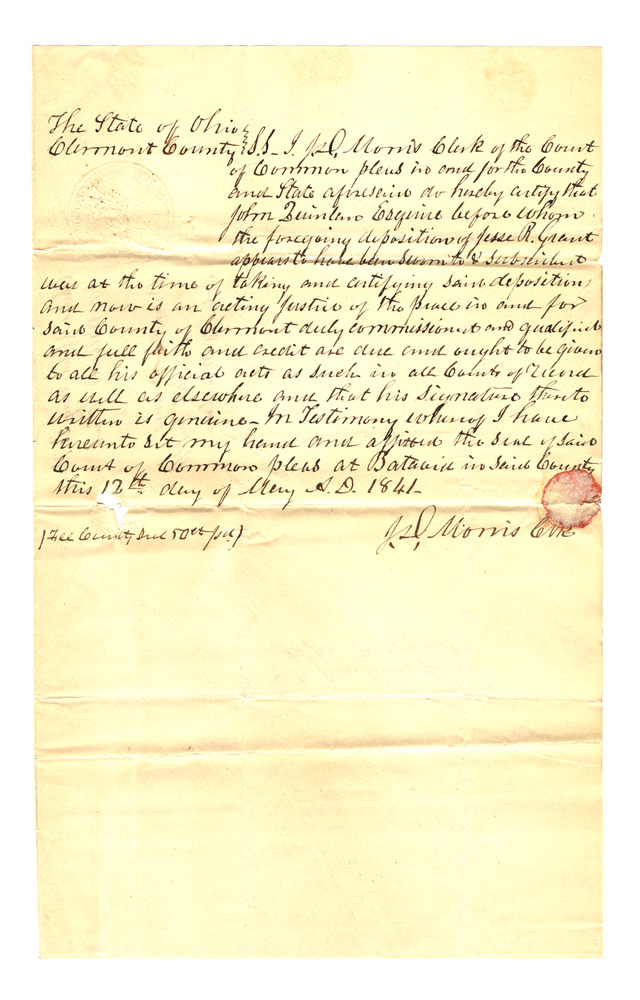 The State of Ohio
Clermont County } S.S. I, Js D. Morris Clerk of the Court
of Common pleas in and for the County
and State aforesaid do hereby certify that
John Quinlan Esquire before whom
the foregoing deposition of Jesse R. Grant
appears to have been sworn to & subscribed
was at the time of taking and certifying said deposition,
and now is an acting Justice of the peace in and for
said County of Clermont duly commissioned and qualified
and full faith and credit are due and ought to be given
to all his official acts as such in all Courts of record
as well as elsewhere and that his signature thereto
written is genuine. In Testimony whereof I have
hereunto set my hand and affixed the seal of said
Court of Common pleas at Batavia in said County
this 12th day of May A.D. 1841.
Js D. Morris Clk
(Fee 50ct pd.)